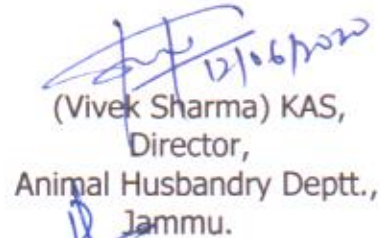 12/06/2020
(Vivek Sharma) KAS,
Director,
Animal Husbandry Deptt.,
Jammu.